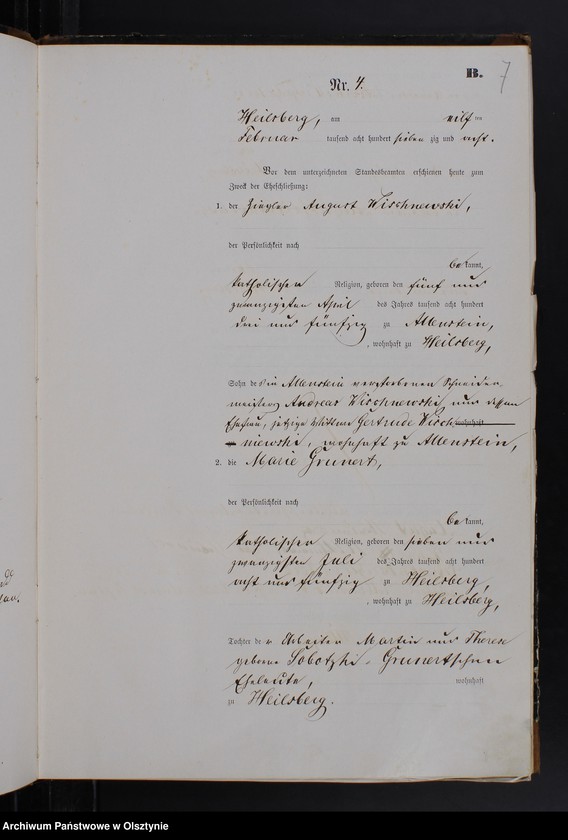 B.
7
Nr. 4.
Heilsberg, am eilf ten
Februar tausend acht hundert sieben zig und acht.
Vor dem unterzeichneten Standesbeamten erschienen heute zum
Zweck der Eheschließung:
1. der Ziegler August Wischnewski,
der Persönlichkeit nach
be kannt,
katholischer Religion, geboren den fünf und
zwanzigsten April des Jahres tausend acht hundert
drei und fünfzig zu Allenstein,
, wohnhaft zu Heilsberg,
Sohn des in Allenstein verstorbenen Schneider
meisters Andreas Wischnewski und dessen
Ehefrau, jetzige Wittwe Gertrude Wisch wohnhaft
niewski, wohnhaft zu Allenstein,
2. die Marie Grunert,
der Persönlichkeit nach
be kannt,
katholischer Religion, geboren den sieben und
zwanzigsten Juli des Jahres tausend acht hundert
acht und fünfzig zu Heilsberg,
, wohnhaft zu Heilsberg,
Tochter der Arbeiter Martin und Therese
geborne Sobotzki - Grunertschen
Eheleute, wohnhaft
zu Heilsberg.
Archiwum Państwowe w Olsztynie